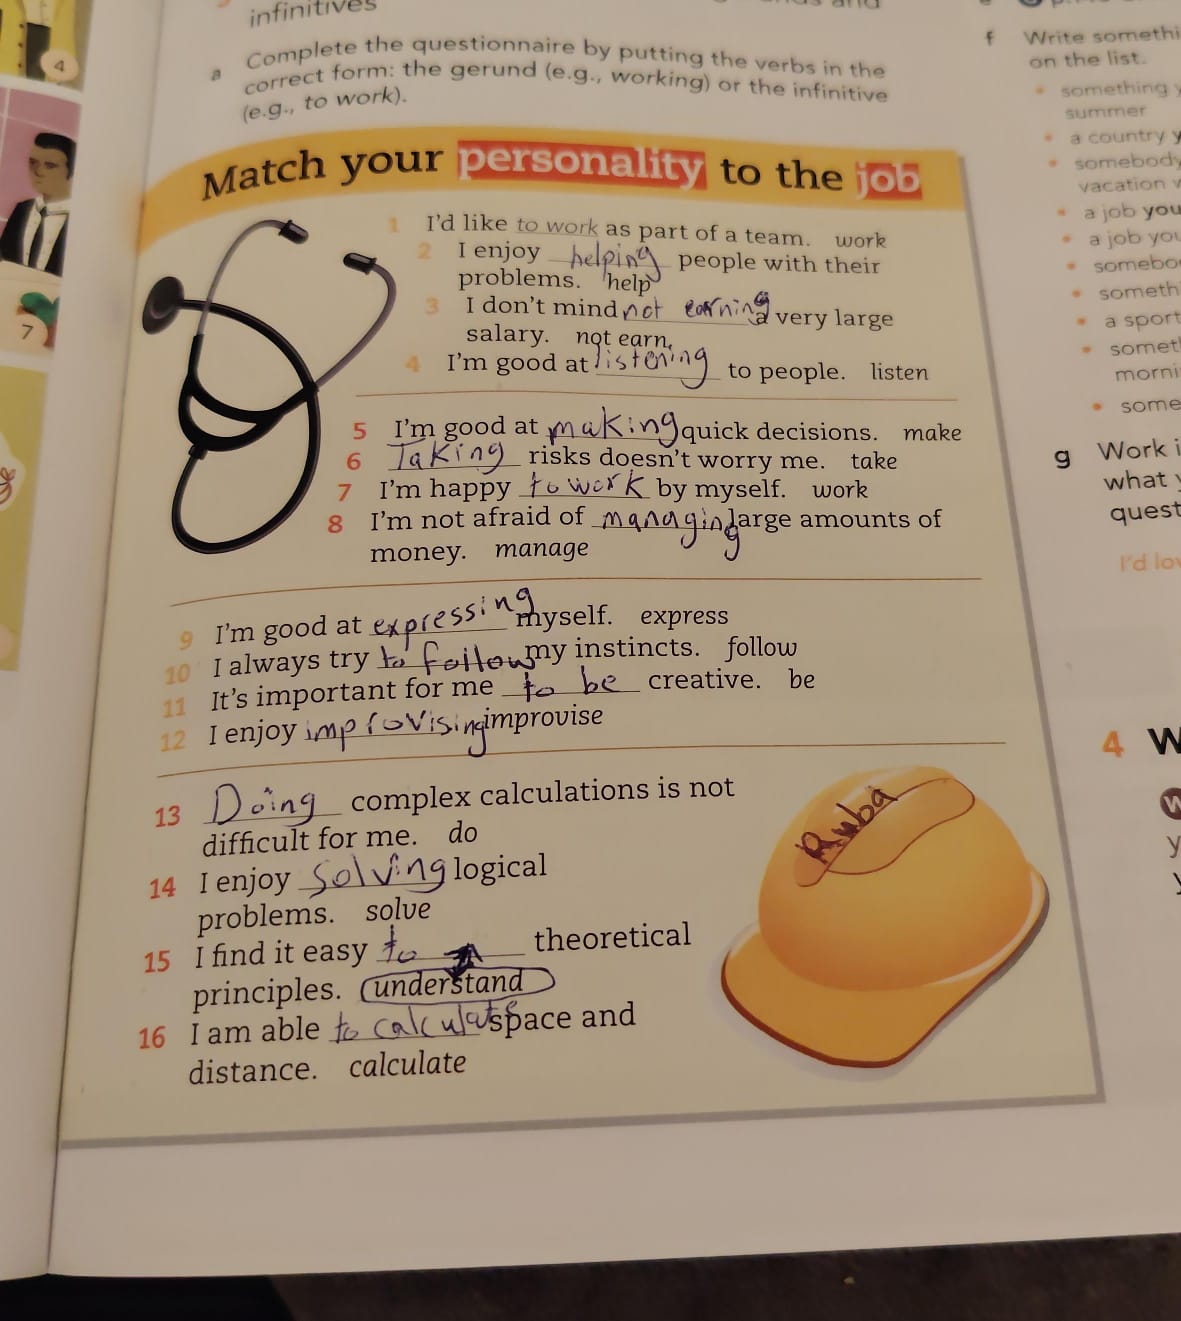 infinitives
a Complete the questionnaire by putting the verbs in the
correct form: the gerund (e.g., working) or the infinitive
(e.g., to work).
Match your personality to the job
1 I'd like to work as part of a team. work
2 I enjoy helping people with their
problems. help
3 I don't mind not earning a very large
salary. not earn
4 I'm good at listening to people. listen
5 I'm good at making quick decisions. make
6 Taking risks doesn't worry me. take
7 I'm happy to work by myself. work
8 I'm not afraid of managing large amounts of
money. manage
9 I'm good at expressing myself. express
10 I always try to follow my instincts. follow
11 It's important for me to be creative. be
12 I enjoy improvising improvise
13 Doing complex calculations is not
difficult for me. do
14 I enjoy solving logical
problems. solve
15 I find it easy to theoretical
principles. understand
16 I am able to calculate space and
distance. calculate
Ruba
4
7
f Write somethi
on the list.
• something y
summer
• a country y
• somebody
vacation
• a job you
• a job you
• somebo
• someth
• a sport
• somet
morni
• some
g Work i
what y
quest
I'd lov
4 W